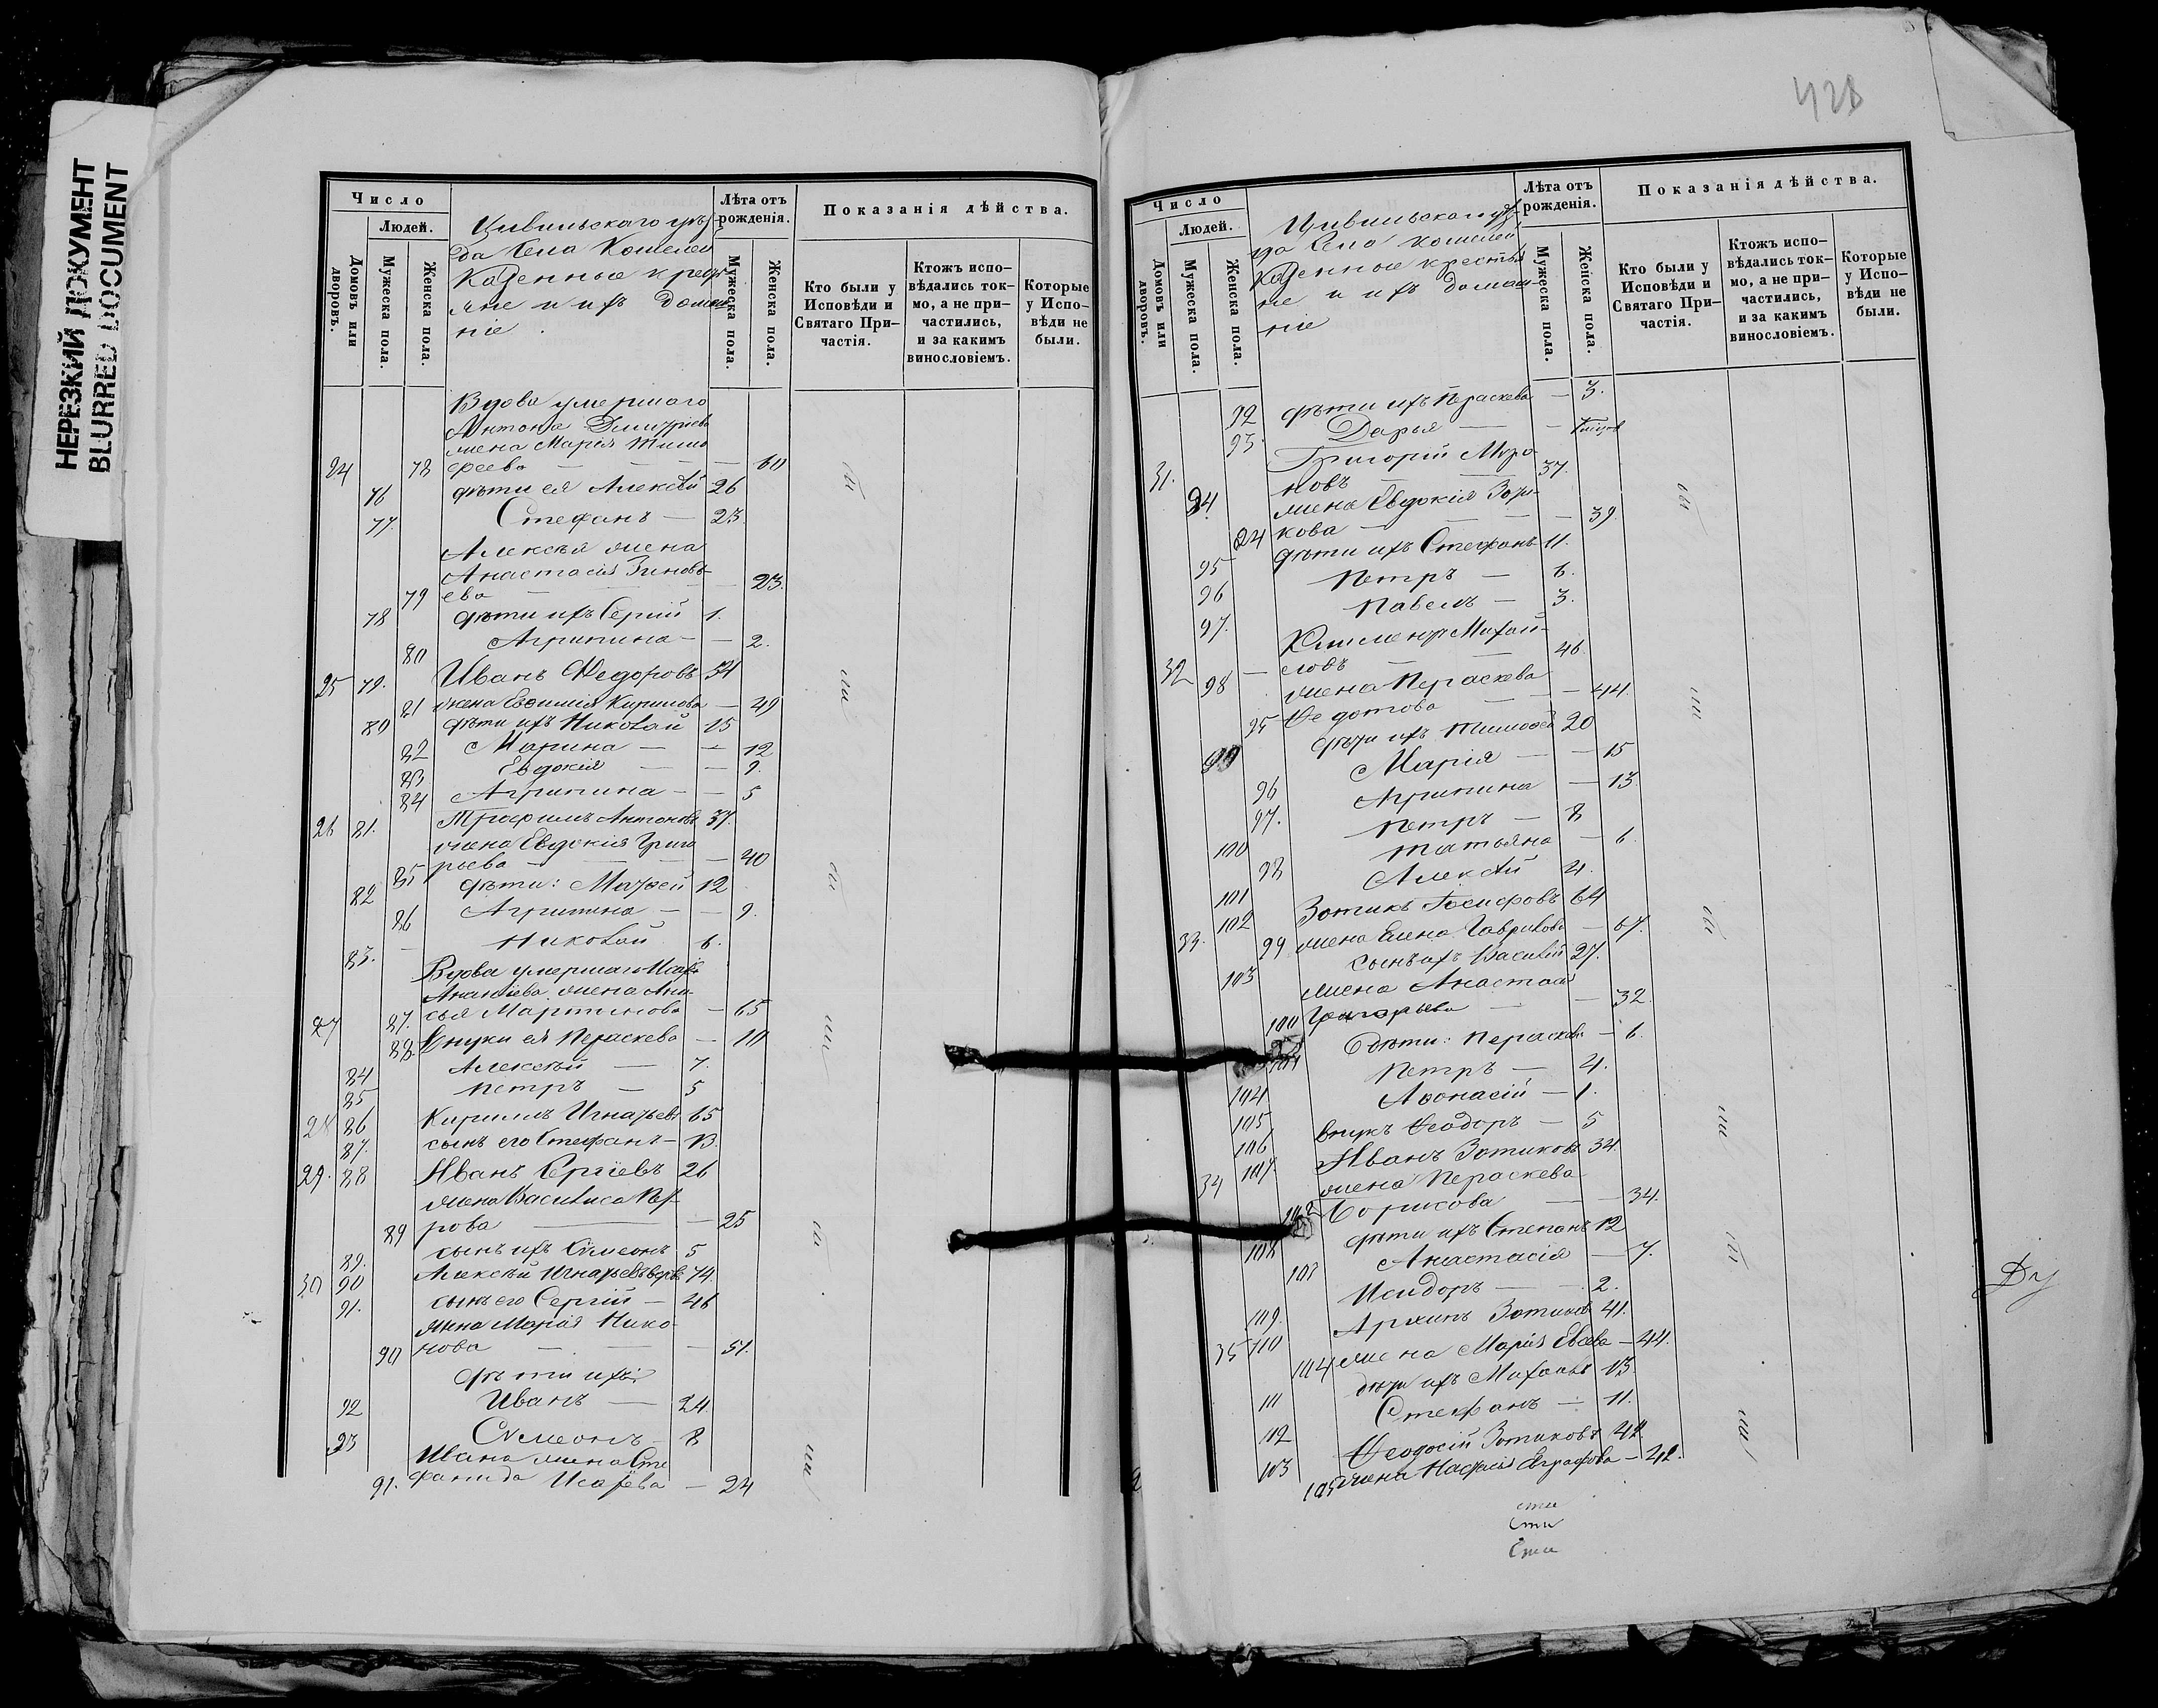 НЕРЕЗКИЙ ДОКУМЕНТ
BLURRED DOCUMENT
Число
Людей.
Домовъ или дворовъ.
Мужеска пола.
Женска пола.
Цивильскаго уѣз-
да Села Кошелей
Казенные крестъ
яне и ихъ домаш
ніе
Лѣта отъ рожденія.
Мужеска пола.
Женска пола.
Показанія дѣйства.
Кто были у Исповѣди и Святаго При-частія.
Ктожъ испо-вѣдались ток-мо, а не при-частились, и за какимъ винословіемъ.
Которые у Испо-вѣди не были.
Вдова умершаго
Антона Димитріева
жена Марія Тимо
24 78 феева — — — 60
76 дѣти ея Алексѣй 26
77. Стефанъ — 23.
Алексѣя жена
Анастасія Зиновь
79 ева — — 23.
78 дѣти ихъ Сергій 1.
80 Агрипина — — 2.
25 79. Иванъ Ѳедоровъ 54
81 жена Евѳимія Кирилова — 49
80 дѣти ихъ Николай 15
82 Марина — — 12
83 Евдокія — — 9.
84 Агрипина — — 5
26 81. Трофимъ Антоновъ 37.
жена Евдокія Григо
85 рьева — — — 40
82 дѣти: Матѳей 12
86 Агрипина — — 9.
83. — Николай 6.
Вдова умершаго
Ананіева жена Ани
27 87. сья Мартинова — 65
88 Внуки ея Пераскева — 10
84 Алексѣй — 7.
85 Петръ — 5
28 86 Кирилъ Игнатьевъ 65
87. сынъ его Стефанъ — 13.
29. 88 Иванъ Сергіевъ 26
жена Василиса Пет
89 рова — — 25
89. сынъ ихъ Сѵмеонъ 5
30 90 Алексѣй Игнатьевъ 74.
91. сынъ его Сергій — 46
жена Марія Нико-
90 нова — — — 51.
дѣти ихъ:
92 Иванъ — 24
93 Сѵмеонъ — 8
Ивана жена Сте
91. фанида Исаѵева — 24
428
Число
Людей.
Домовъ или дворовъ.
Мужеска пола.
Женска пола.
Цивильскаго уѣ-
зда Села Кошелей
Казенные крестья
не и ихъ домаш-
ніе
Лѣта отъ рожденія.
Мужеска пола.
Женска пола.
Показанія дѣйства.
Кто были у Исповѣди и Святаго При-частія.
Ктожъ испо-вѣдались ток-мо, а не при-частились, и за какимъ винословіемъ.
Которые у Испо-вѣди не были.
92 дѣти ихъ Пераскева — 3.
93. Дарья — —
Григорій Миро
31. 94. новъ — — 37.
жена Евдокія Зоти-
94 кова — — — 39.
95 дѣти ихъ Стефанъ 11.
96 Петръ — 6.
97. Павелъ — 3.
Климентъ Михай-
32 98 — ловъ — — 46.
жена Пераскева
95 Ѳедотова — — 44.
99 дѣти ихъ Тимоѳей 20
96 Марія — — 15
97. Агрипина — 13.
100 Петръ — 8
98 Татьяна — 6.
101 Алексѣй 4.
33. 102 Зотикъ Іосифовъ 64
99 жена Елена Гаврилова — 67.
103 сынъ ихъ Василій 27.
жена Анастасія
100 Григорьева — — 32.
101 дѣти: Пераскева — 6.
104 Петръ — 4.
105 Аѳонасій — 1.
106 внукъ Ѳеодоръ — 5
34 107. Иванъ Зотиковъ 34.
жена Пераскева
102 Борисова — — 34.
108 дѣти ихъ Степанъ 12
103 Анастасія — 7.
109. Исидоръ — 2.
35 110 Архипъ Зотиковъ 41.
104 жена Марія Евсева — 44.
111 дѣти ихъ Михаилъ 13
112 Стефанъ — 11.
113 Ѳеодосій Зотиковъ 42
105 жена Наталія Евграфова — 42.
сти
Сти
Сти